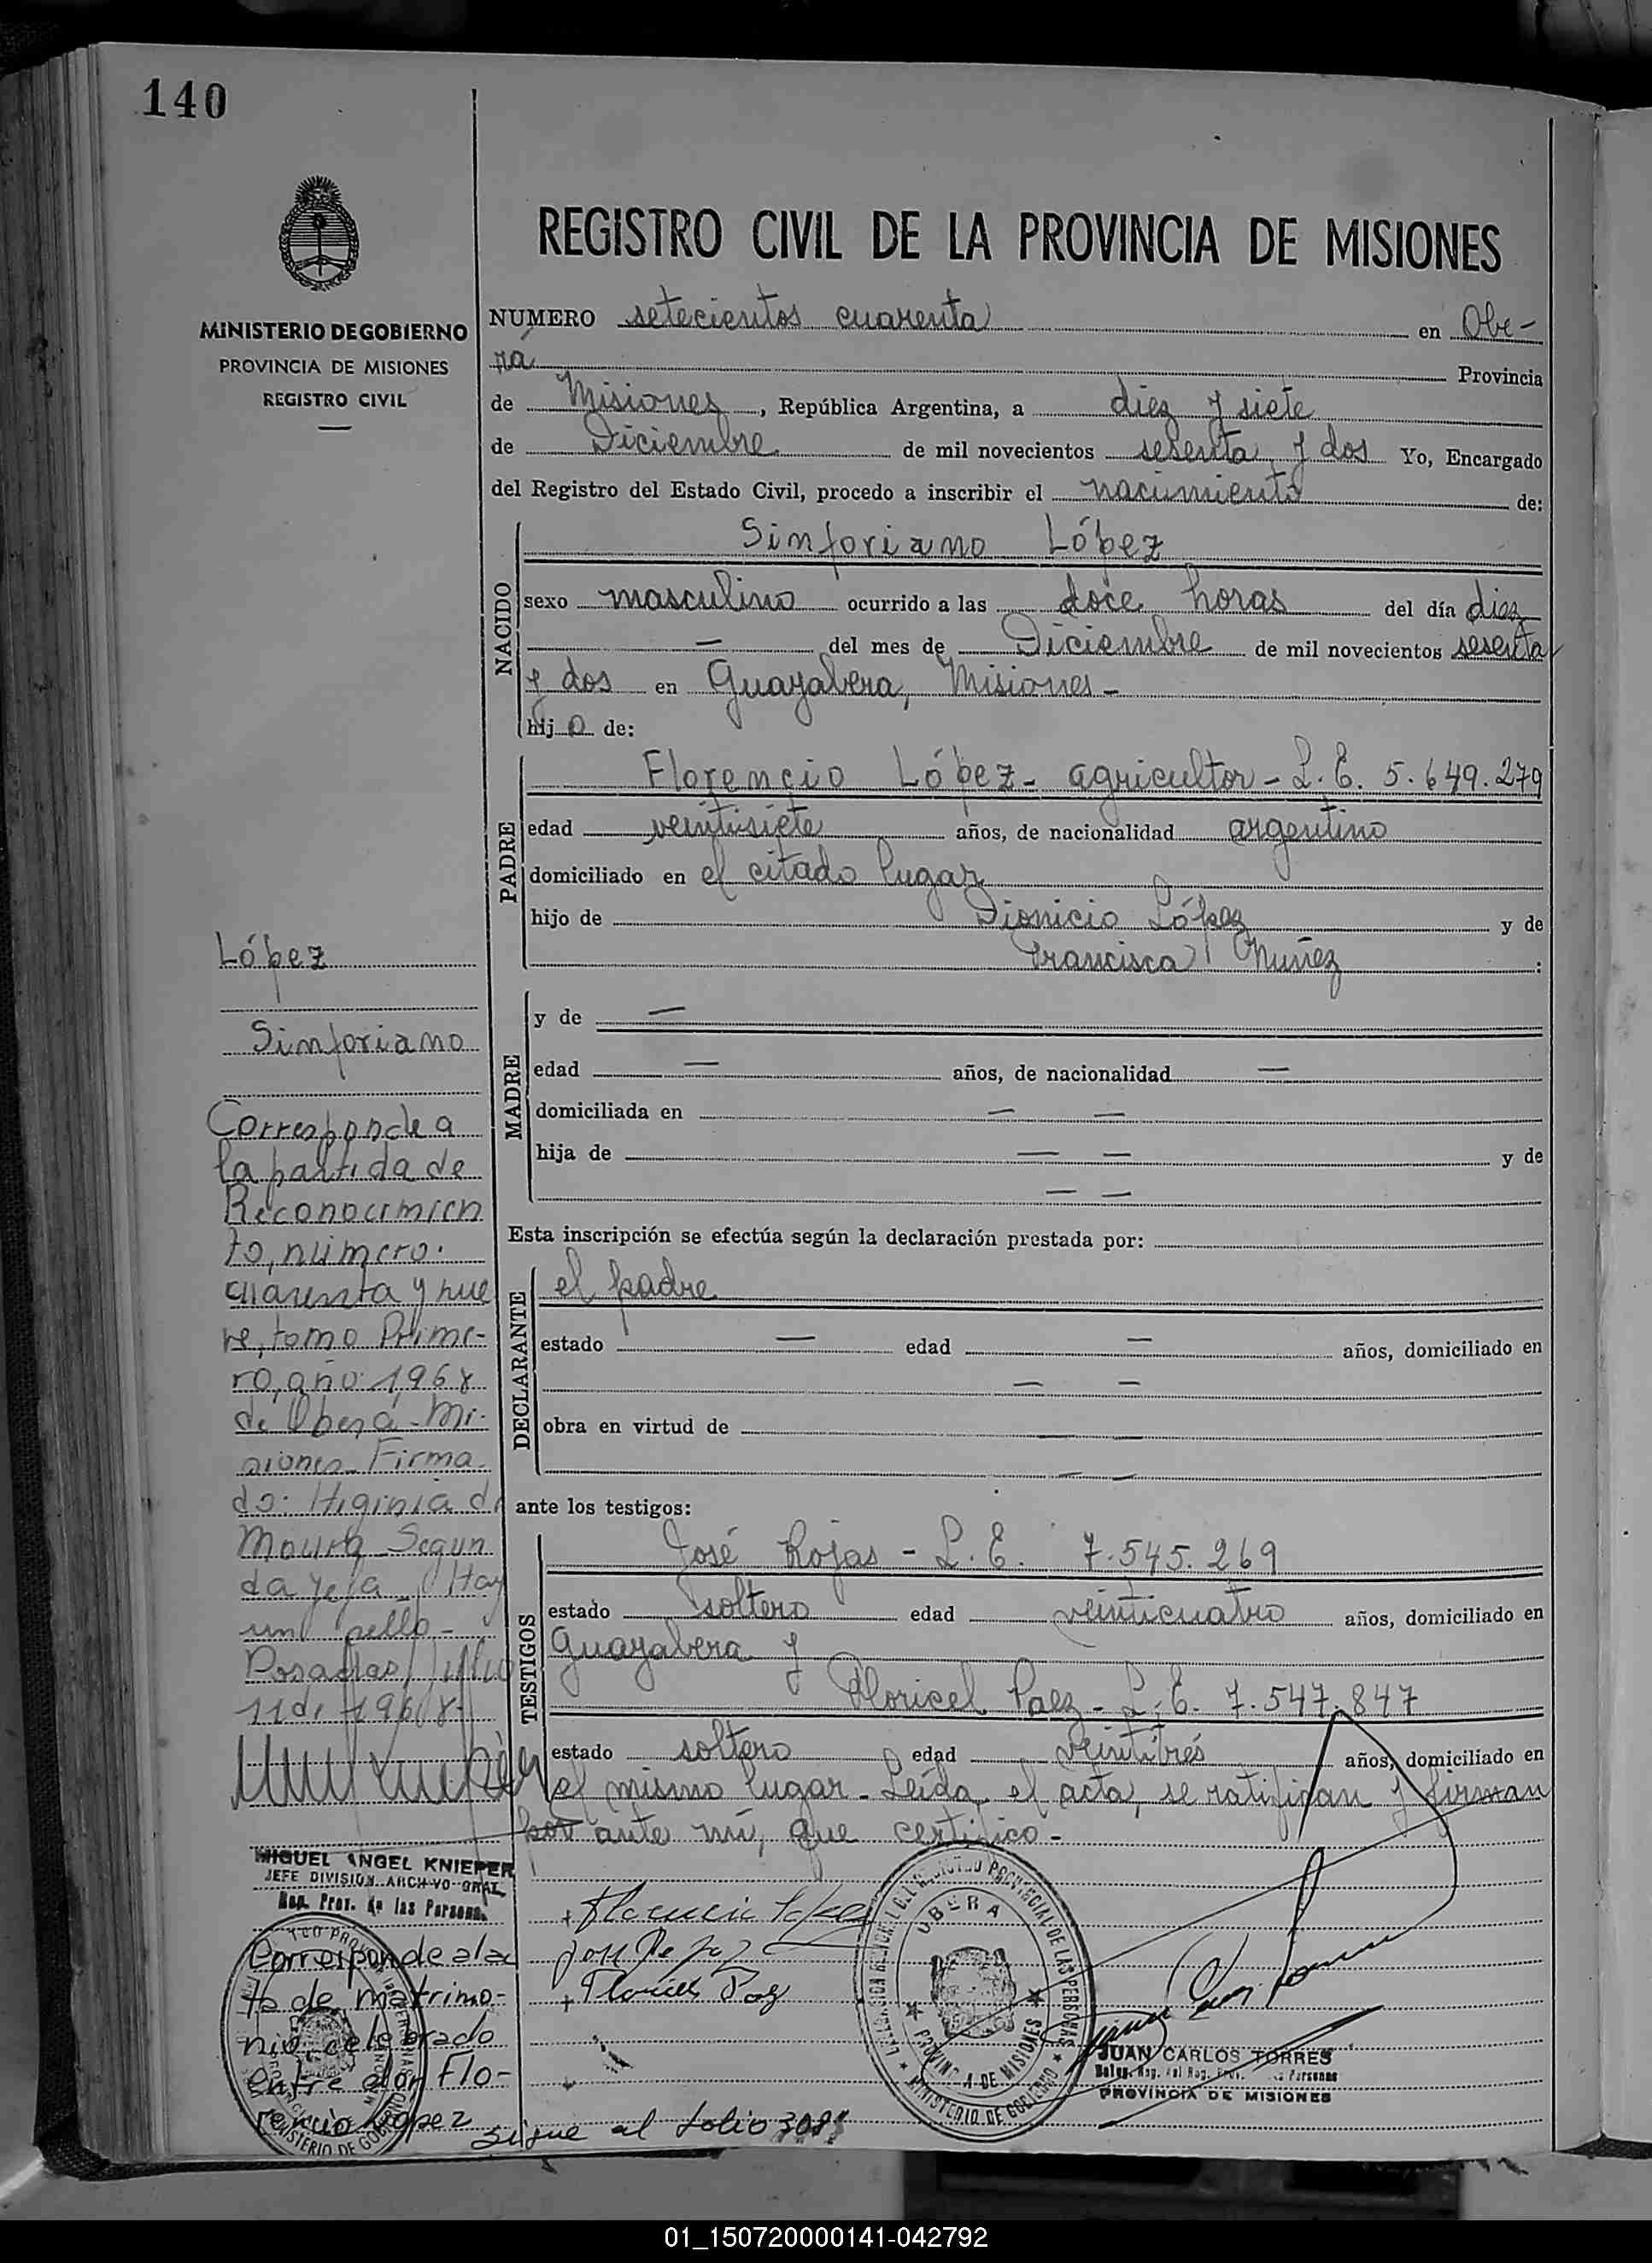 140
REGISTRO CIVIL DE LA PROVINCIA DE MISIONES
MINISTERIO DE GOBIERNO
PROVINCIA DE MISIONES
REGISTRO CIVIL
NUMERO setecientos cuarenta en Obe-
rá Provincia
de Misiones, República Argentina, a diez y siete
de Diciembre de mil novecientos sesenta y dos Yo, Encargado
del Registro del Estado Civil, procedo a inscribir el nacimiento de:
NACIDO
Sinforiano López
sexo masculino ocurrido a las doce horas del día diez
— del mes de Diciembre de mil novecientos sesenta
y dos en Guayabera, Misiones -
hijo de:
PADRE
Florencio López - agricultor - L. E. 5.649.279
edad veintisiete años, de nacionalidad argentino
domiciliado en el citado lugar
hijo de Dionicio López y de
Francisca Nuñez :
MADRE
y de —
edad — años, de nacionalidad —
domiciliada en — —
hija de — — y de
— —
Esta inscripción se efectúa según la declaración prestada por:
DECLARANTE
el padre
estado — edad — años, domiciliado en
— —
obra en virtud de — —
— —
ante los testigos:
TESTIGOS
José Rojas - L. E. 7.545.269
estado soltero edad veinticuatro años, domiciliado en
Guayabera y
Floricel Paez - L. E. 7.547.847
estado soltero edad veintitrés años, domiciliado en
el mismo lugar - Leída el acta, se ratifican y firman
por ante mí, que certifico -
López
Sinforiano
Corresponde a
la partida de
Reconocimien
to, número:
cuarenta y nue
ve, tomo Prime-
ro, año: 1968
de Oberá - Mi-
siones - Firma
do: Higinia de
Segun
da Jefa - Hay
un sello -
Posadas, Julio
11 de 1968 -
MIGUEL ANGEL KNIEPER
JEFE DIVISION ARCHIVO GRAL
Reg. Prov. de las Personas
Corresponde al ac
ta de matrimo-
nio celebrado
entre don Flo-
rencio López
sigue al folio 308
Florencio López
José Rojas
Floricel Paez
OBERA
PROVINCIA DE MISIONES
MINISTERIO DE GOBIERNO
JUAN CARLOS TORRES
PROVINCIA DE MISIONES
01_150720000141-042792